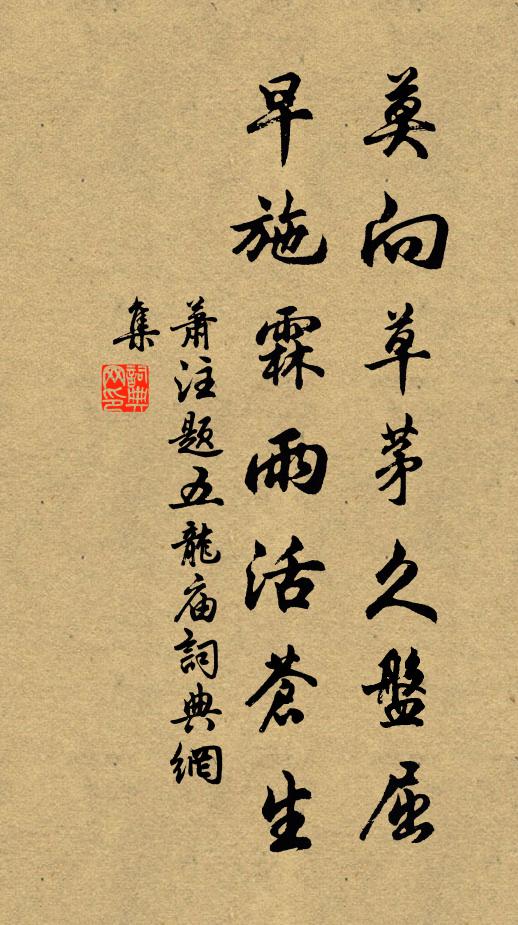 莫向草茅久盤屈
早施霖雨活蒼生
蕭注題五龍庙詞典網
集
詞典网印